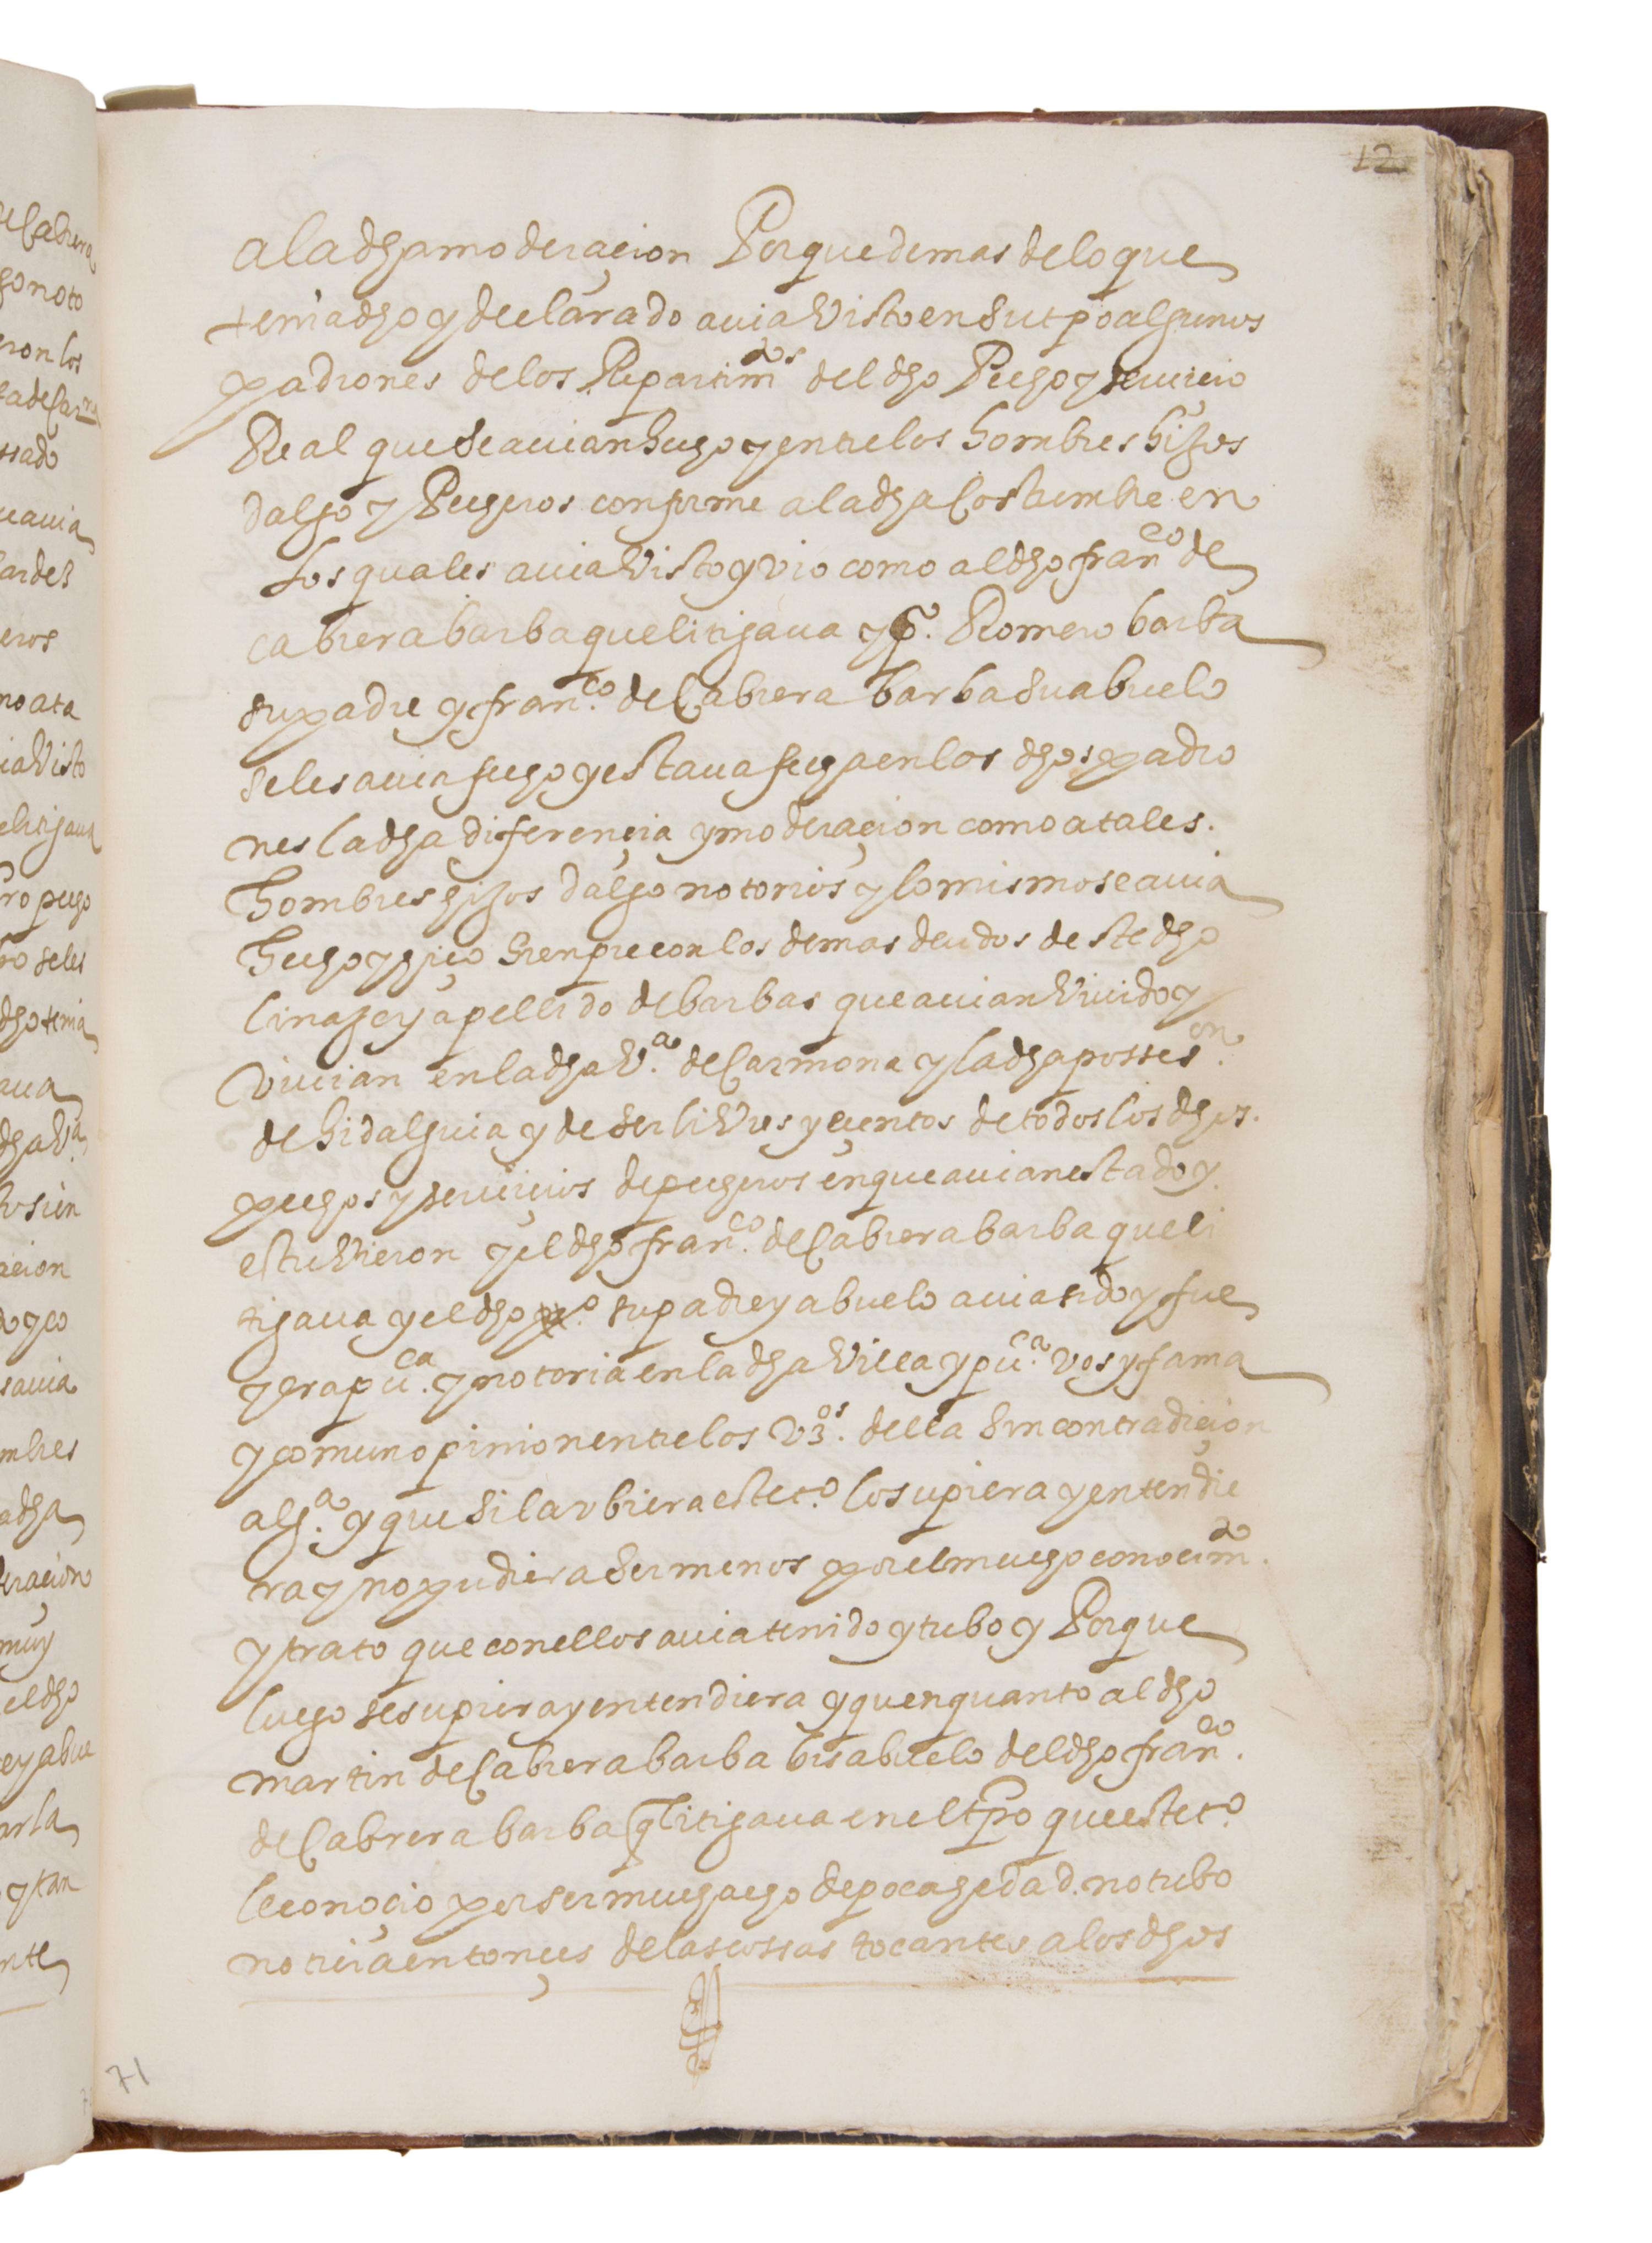 12
a la dha moderaçion Porque demas de lo que
tenia dho y declarado auia Visto en su tpo algunos
padrones de los Repartimos del dho Pecho y seruicio
Real que se auian hecho y entre los hombres hijos
dalgo y Pecheros conforme a la dha Costumbre en
los quales auia Visto y vio como al dho franco de
cabrera barba que litigaua y po. Romero barba
su padre y franco. de Cabrera barba su abuelo
se les auia hecho y estaua hecha en los dhos padro
nes la dha diferençia y moderaçion como a tales.
hombres hijos dalgo notorios y lo mismo se auia
hecho y hiço sienpre con los demas deudos deste dho
linaje y apellido de barbas que auian Viuido y
Viuian en la dha Va. de Carmona y la dha possesion.
de hidalguia y de ser liVres y eçentos de todos los dhos.
pechos y seruiçios de pecheros en que auian estado y
estuVieron y el dho franco. de Cabrera barba que li
tigaua y el dho po. su padre y abuelo auia sido y fue
y era puca. y notoria en la dha Villa y puca. vos y fama
y comun opinion entre los vzos. della sin contradiçion
alga. y que si la vbiera este to. lo supiera y entendie
ra y no pudiera ser menos por el mucho conocimo.
y trato que con ellos auia tenido y tubo y Porque
luego se supiera y entendiera y quenquanto al dho
martin de Cabrera barba bisabuelo del dho franco.
de Cabrera barba q litigaua en el tpo que este to.
le conoçio por ser muchacho de poca hedad. no tubo
notiçia entonçes de las cossas tocantes a los dhos
71